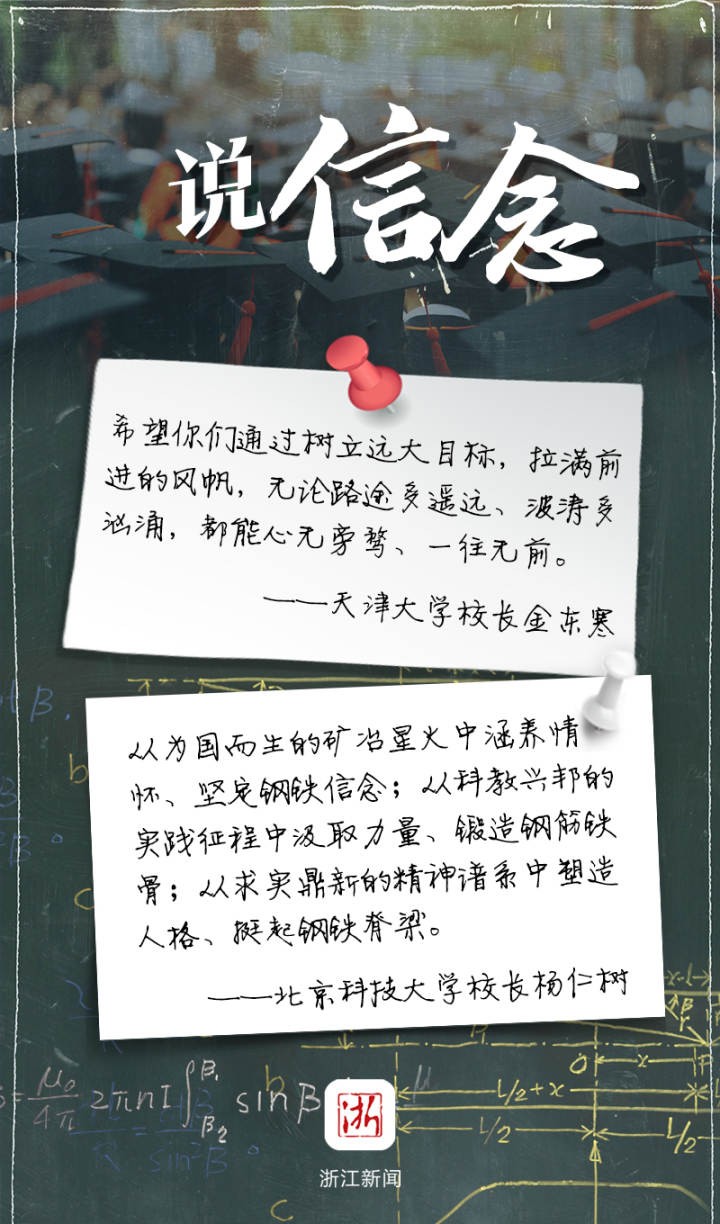 说信念
希望你们通过树立远大目标，拉满前
进的风帆，无论路途多遥远、波涛多
汹涌，都能心无旁骛、一往无前。
——天津大学校长金东寒
从为国而生的矿冶星火中涵养情
怀、坚定钢铁信念；从科教兴邦的
实践征程中汲取力量、锻造钢筋铁
骨；从求实鼎新的精神谱系中塑造
人格、挺起钢铁脊梁。
——北京科技大学校长杨仁树
浙
浙江新闻